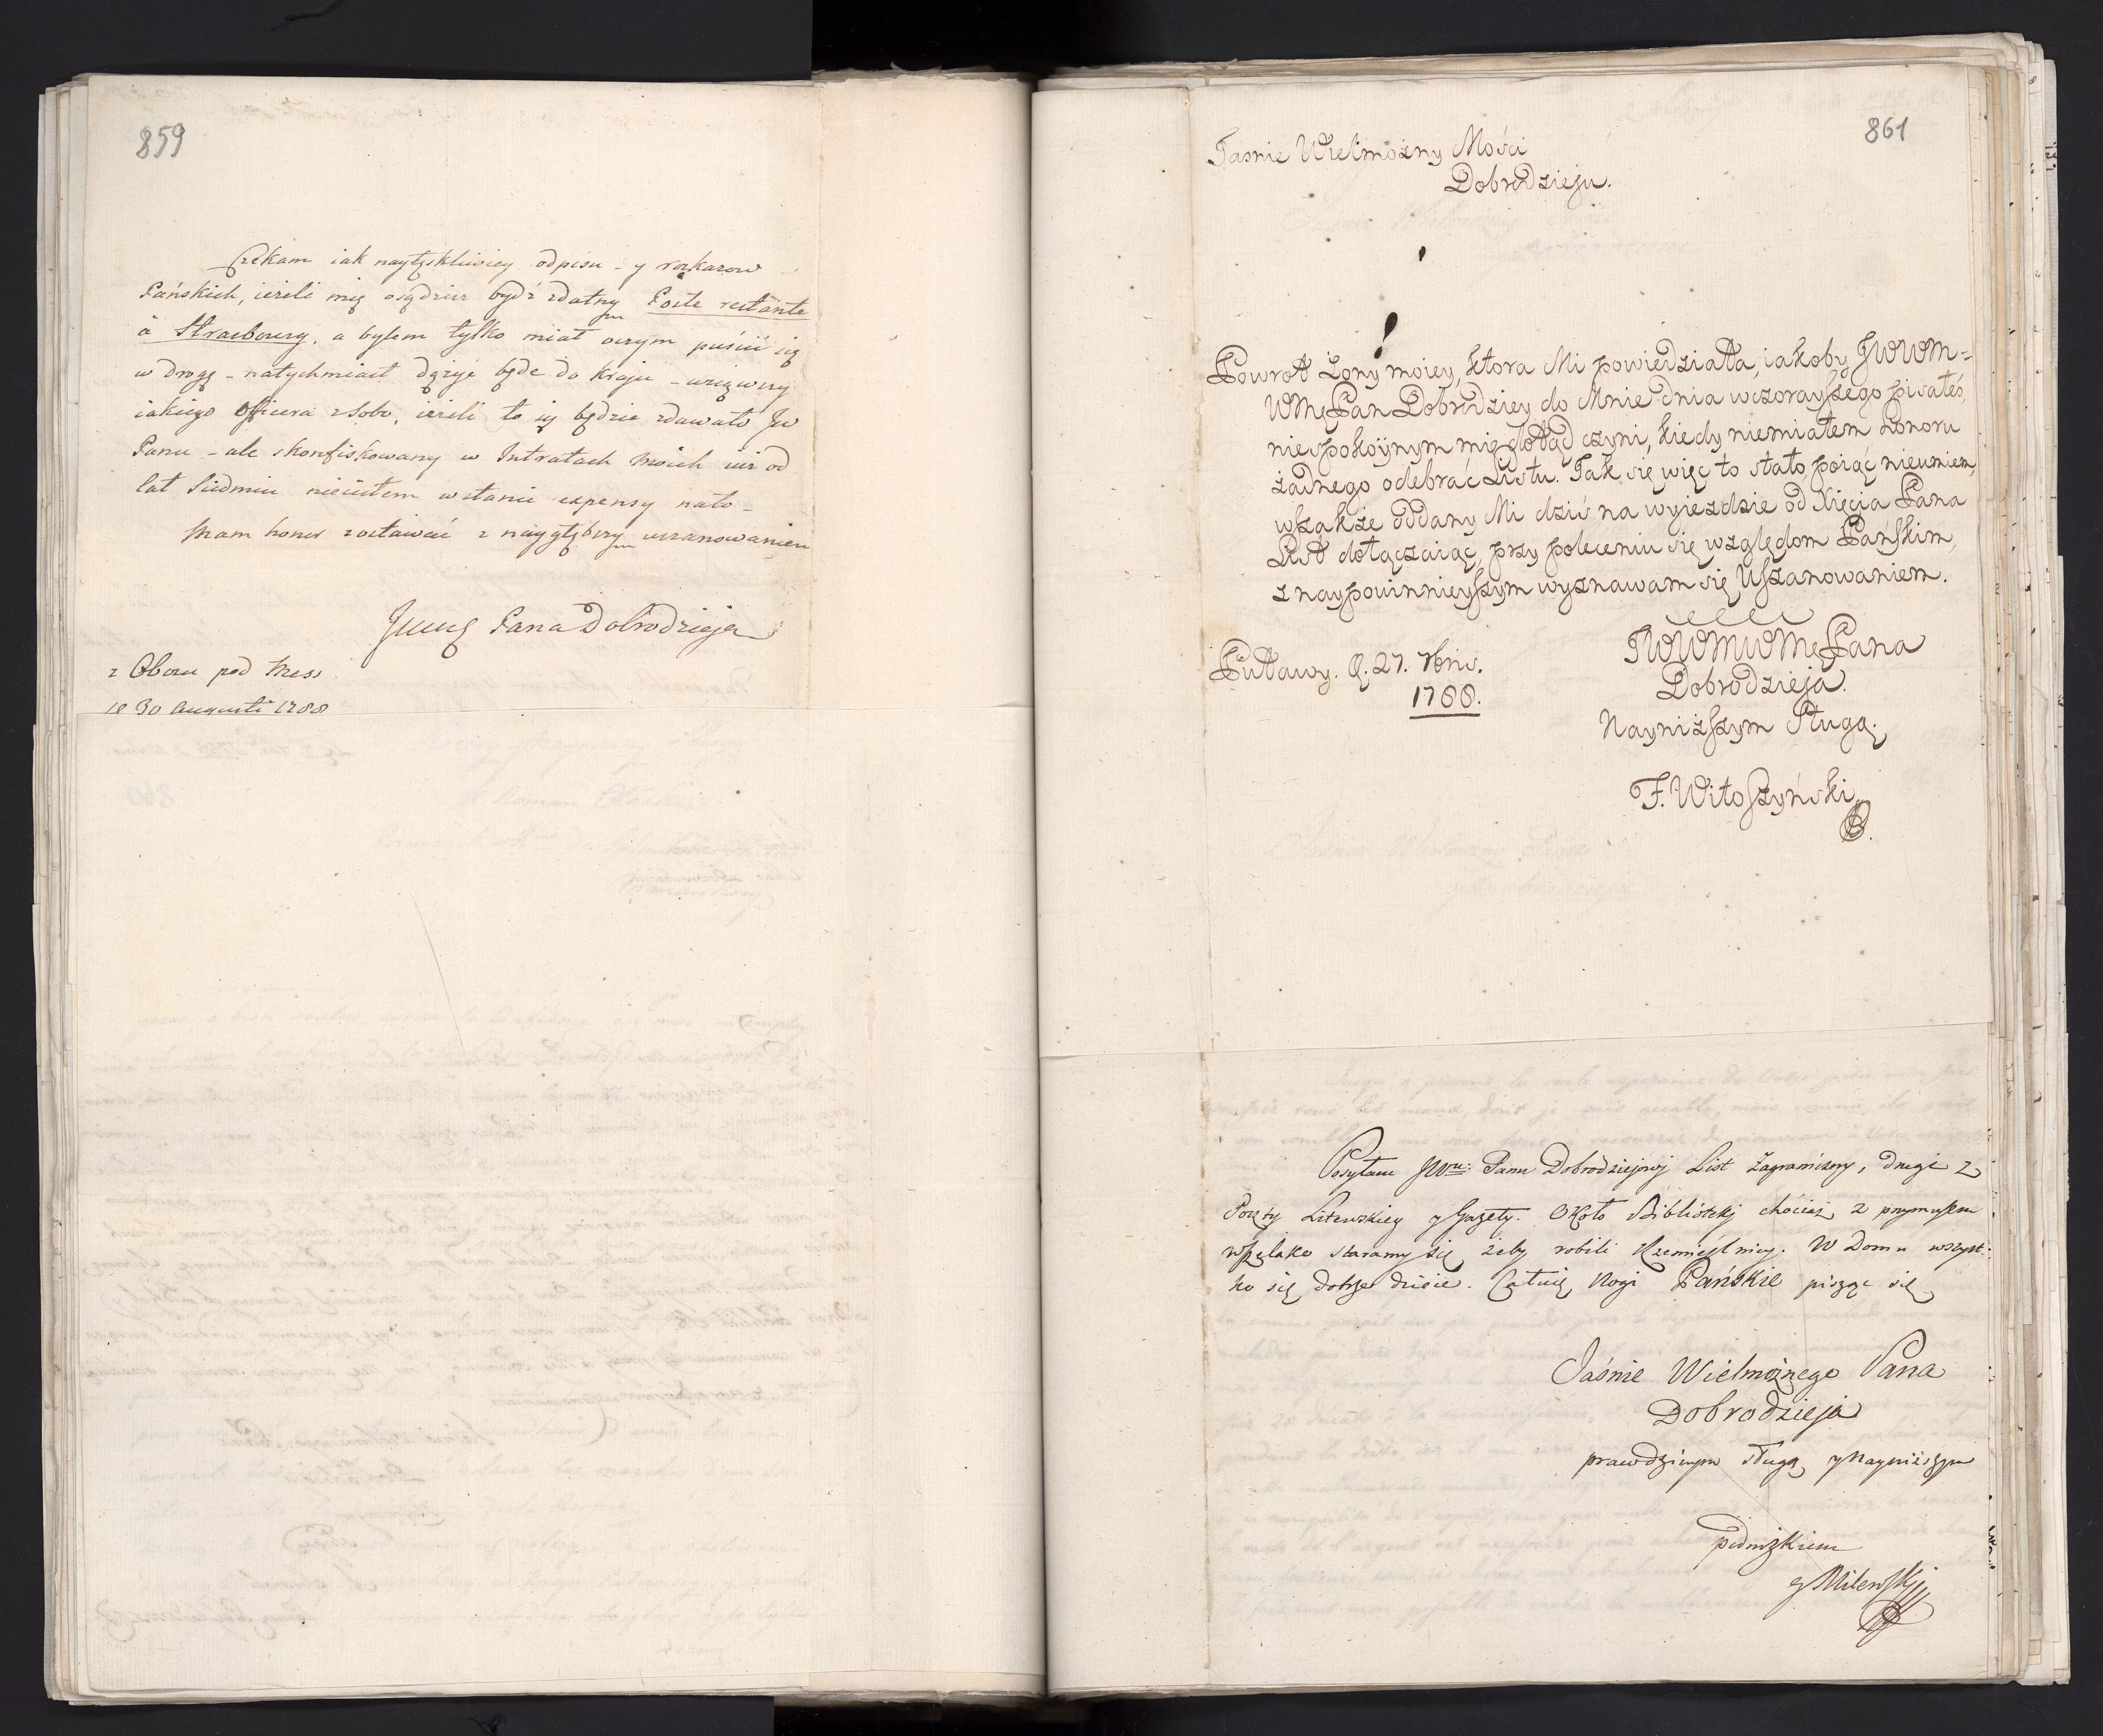 859
Czekam iak naytęskliwiey odpisu - y rozkazow
Pańskich, ieżeli mię osądzisz bydź zdatnym Poste restante
à Strasbourg. a bylem tylko miał oczym puścić się
w drogę - natychmiast dążyć będe do kraju - wziąwszy
iakiego officera z sobo, ieżeli to się będzie zdawało Jw
Panu - ale skonfiskowany w Intratach moich iuż od
lat siedmiu nieiestem wstanie expensy nato -
Mam honor zostawać z naygłębszym uszanowaniem
Pana Dobrodzieja
z Obozu pod Mess
30 Augusti 1788
861
Jasnie Wielmożny Mości
Dobrodzieju.
Powrot Żony moiey, ktora Mi powiedziała, iakoby JWWM=
WMęPan Dobrodziey do Mnie dnia wczorayszego pisałeś,
niespokoynym mię dotąd czyni, kiedy niemiałem honoru
żadnego odebrać Listu. Jak się więc to stało, poiąć nieumiem,
wszakże oddany Mi dziś na wyjezdzie od Xięcia Pana
List dołączaiąc, przy poleceniu się względom Pańskim,
z naypowinnieyszym wyznawam się Uszanowaniem.
JWWMWMęPana
Dobrodzieja.
Nayniższym Sługą.
Puławy. d. 27. 7bris.
1788.
F. Witoszyński
Posyłam JWmu: Panu Dobrodziejowj List Zagraniczny, drugi z
Poczty Litewskiey y Gazety. Około Bibliotekj chociaż z przymusem
wszelako staramy się żeby robili Rzemieślnicy. W Domu wszyst-
ko się dobrze dzieie. Całuię Nogi Pańskie pisząc się
Jaśnie Wielmożnego Pana
Dobrodzieja
prawdziwym sługą y Nayniższym
podnożkiem
Milewskj